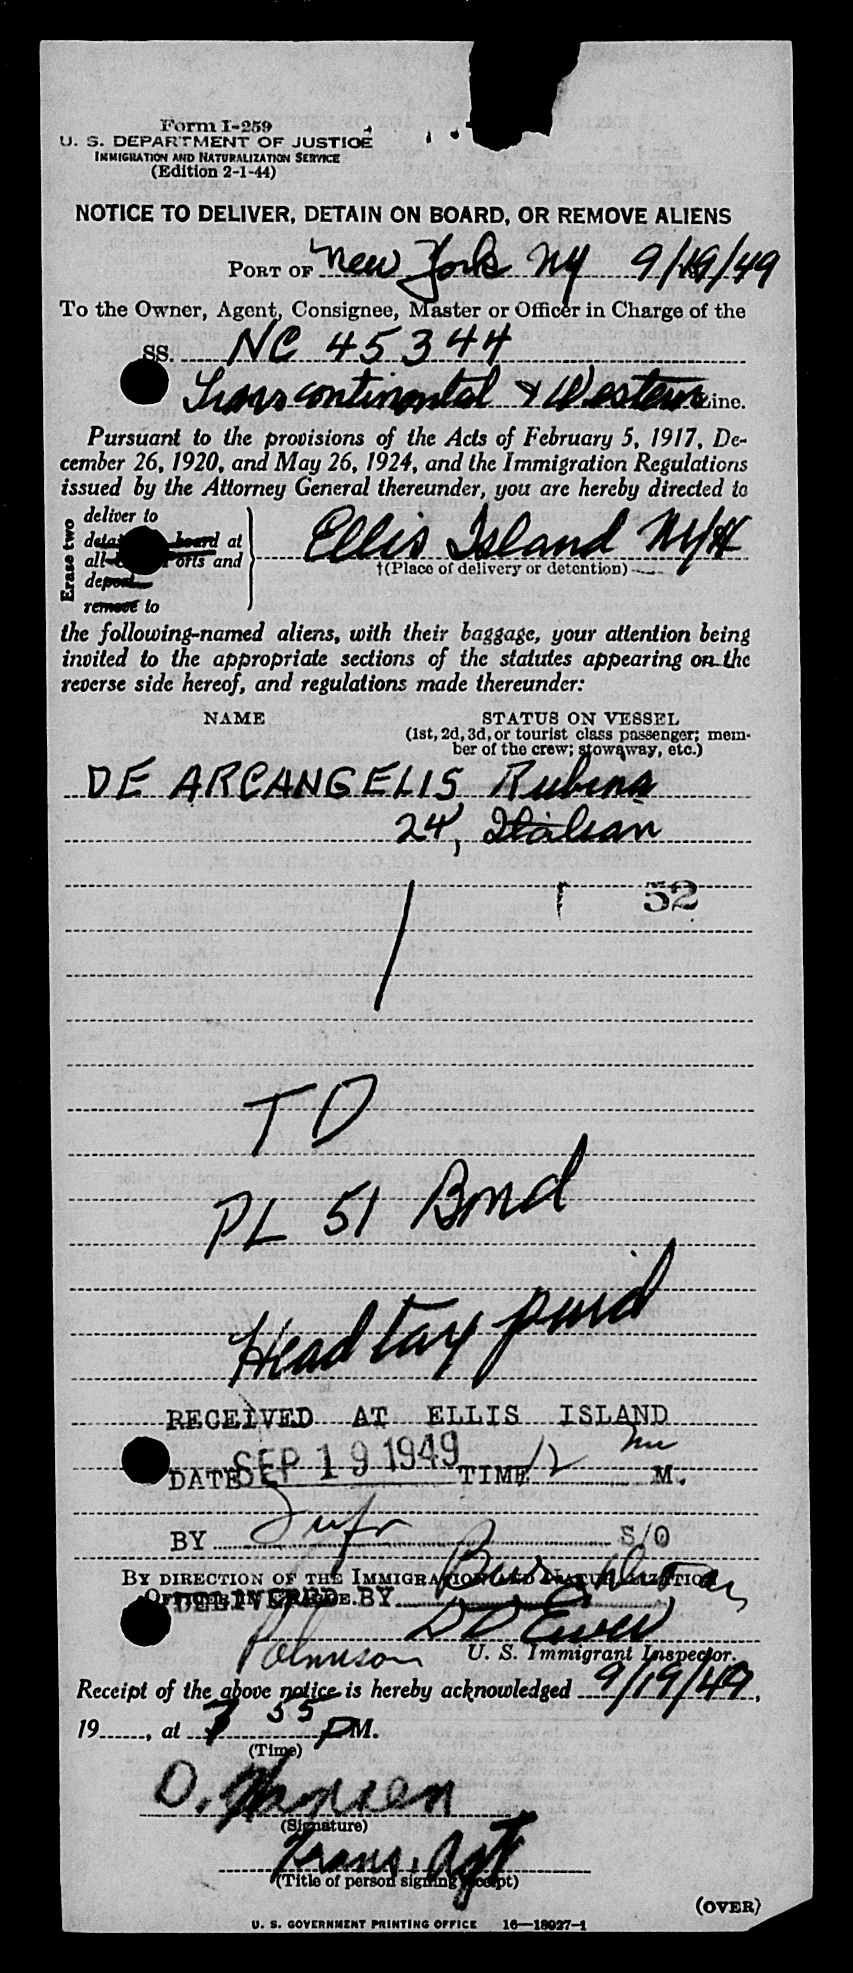 Form I-259
U. S. DEPARTMENT OF JUSTICE
IMMIGRATION AND NATURALIZATION SERVICE
(Edition 2-1-44)
NOTICE TO DELIVER, DETAIN ON BOARD, OR REMOVE ALIENS
PORT OF New York NY 9/19/49
To the Owner, Agent, Consignee, Master or Officer in Charge of the
SS. NC 45344
Transcontinental & Western Line.
Pursuant to the provisions of the Acts of February 5, 1917, De-
cember 26, 1920, and May 26, 1924, and the Immigration Regulations
issued by the Attorney General thereunder, you are hereby directed to
Erase two
deliver to
board at
all orts and
depo
remove to
Ellis Island NYH
†(Place of delivery or detention)
the following-named aliens, with their baggage, your attention being
invited to the appropriate sections of the statutes appearing on the
reverse side hereof, and regulations made thereunder:
NAME STATUS ON VESSEL
(1st, 2d, 3d, or tourist class passenger; mem-
ber of the crew; stowaway, etc.)
DE ARCANGELIS Rubina
24, Italian
52
TD
PL 51 Bond
Head tax paid
RECEIVED AT ELLIS ISLAND
DATE SEP 19 1949 TIME 12 M.
BY S/O
BY DIRECTION OF THE IMMIGRATION AND NATURALIZATION
OFFICER IN CHARGE.
DELIVERED BY
U. S. Immigrant Inspector.
Receipt of the above notice is hereby acknowledged 9/19/49,
19 , at 7 55 PM.
(Time)
O. Hansen
(Signature)
Trans. Agt
(Title of person signing receipt)
(OVER)
U. S. GOVERNMENT PRINTING OFFICE 16—18027-1